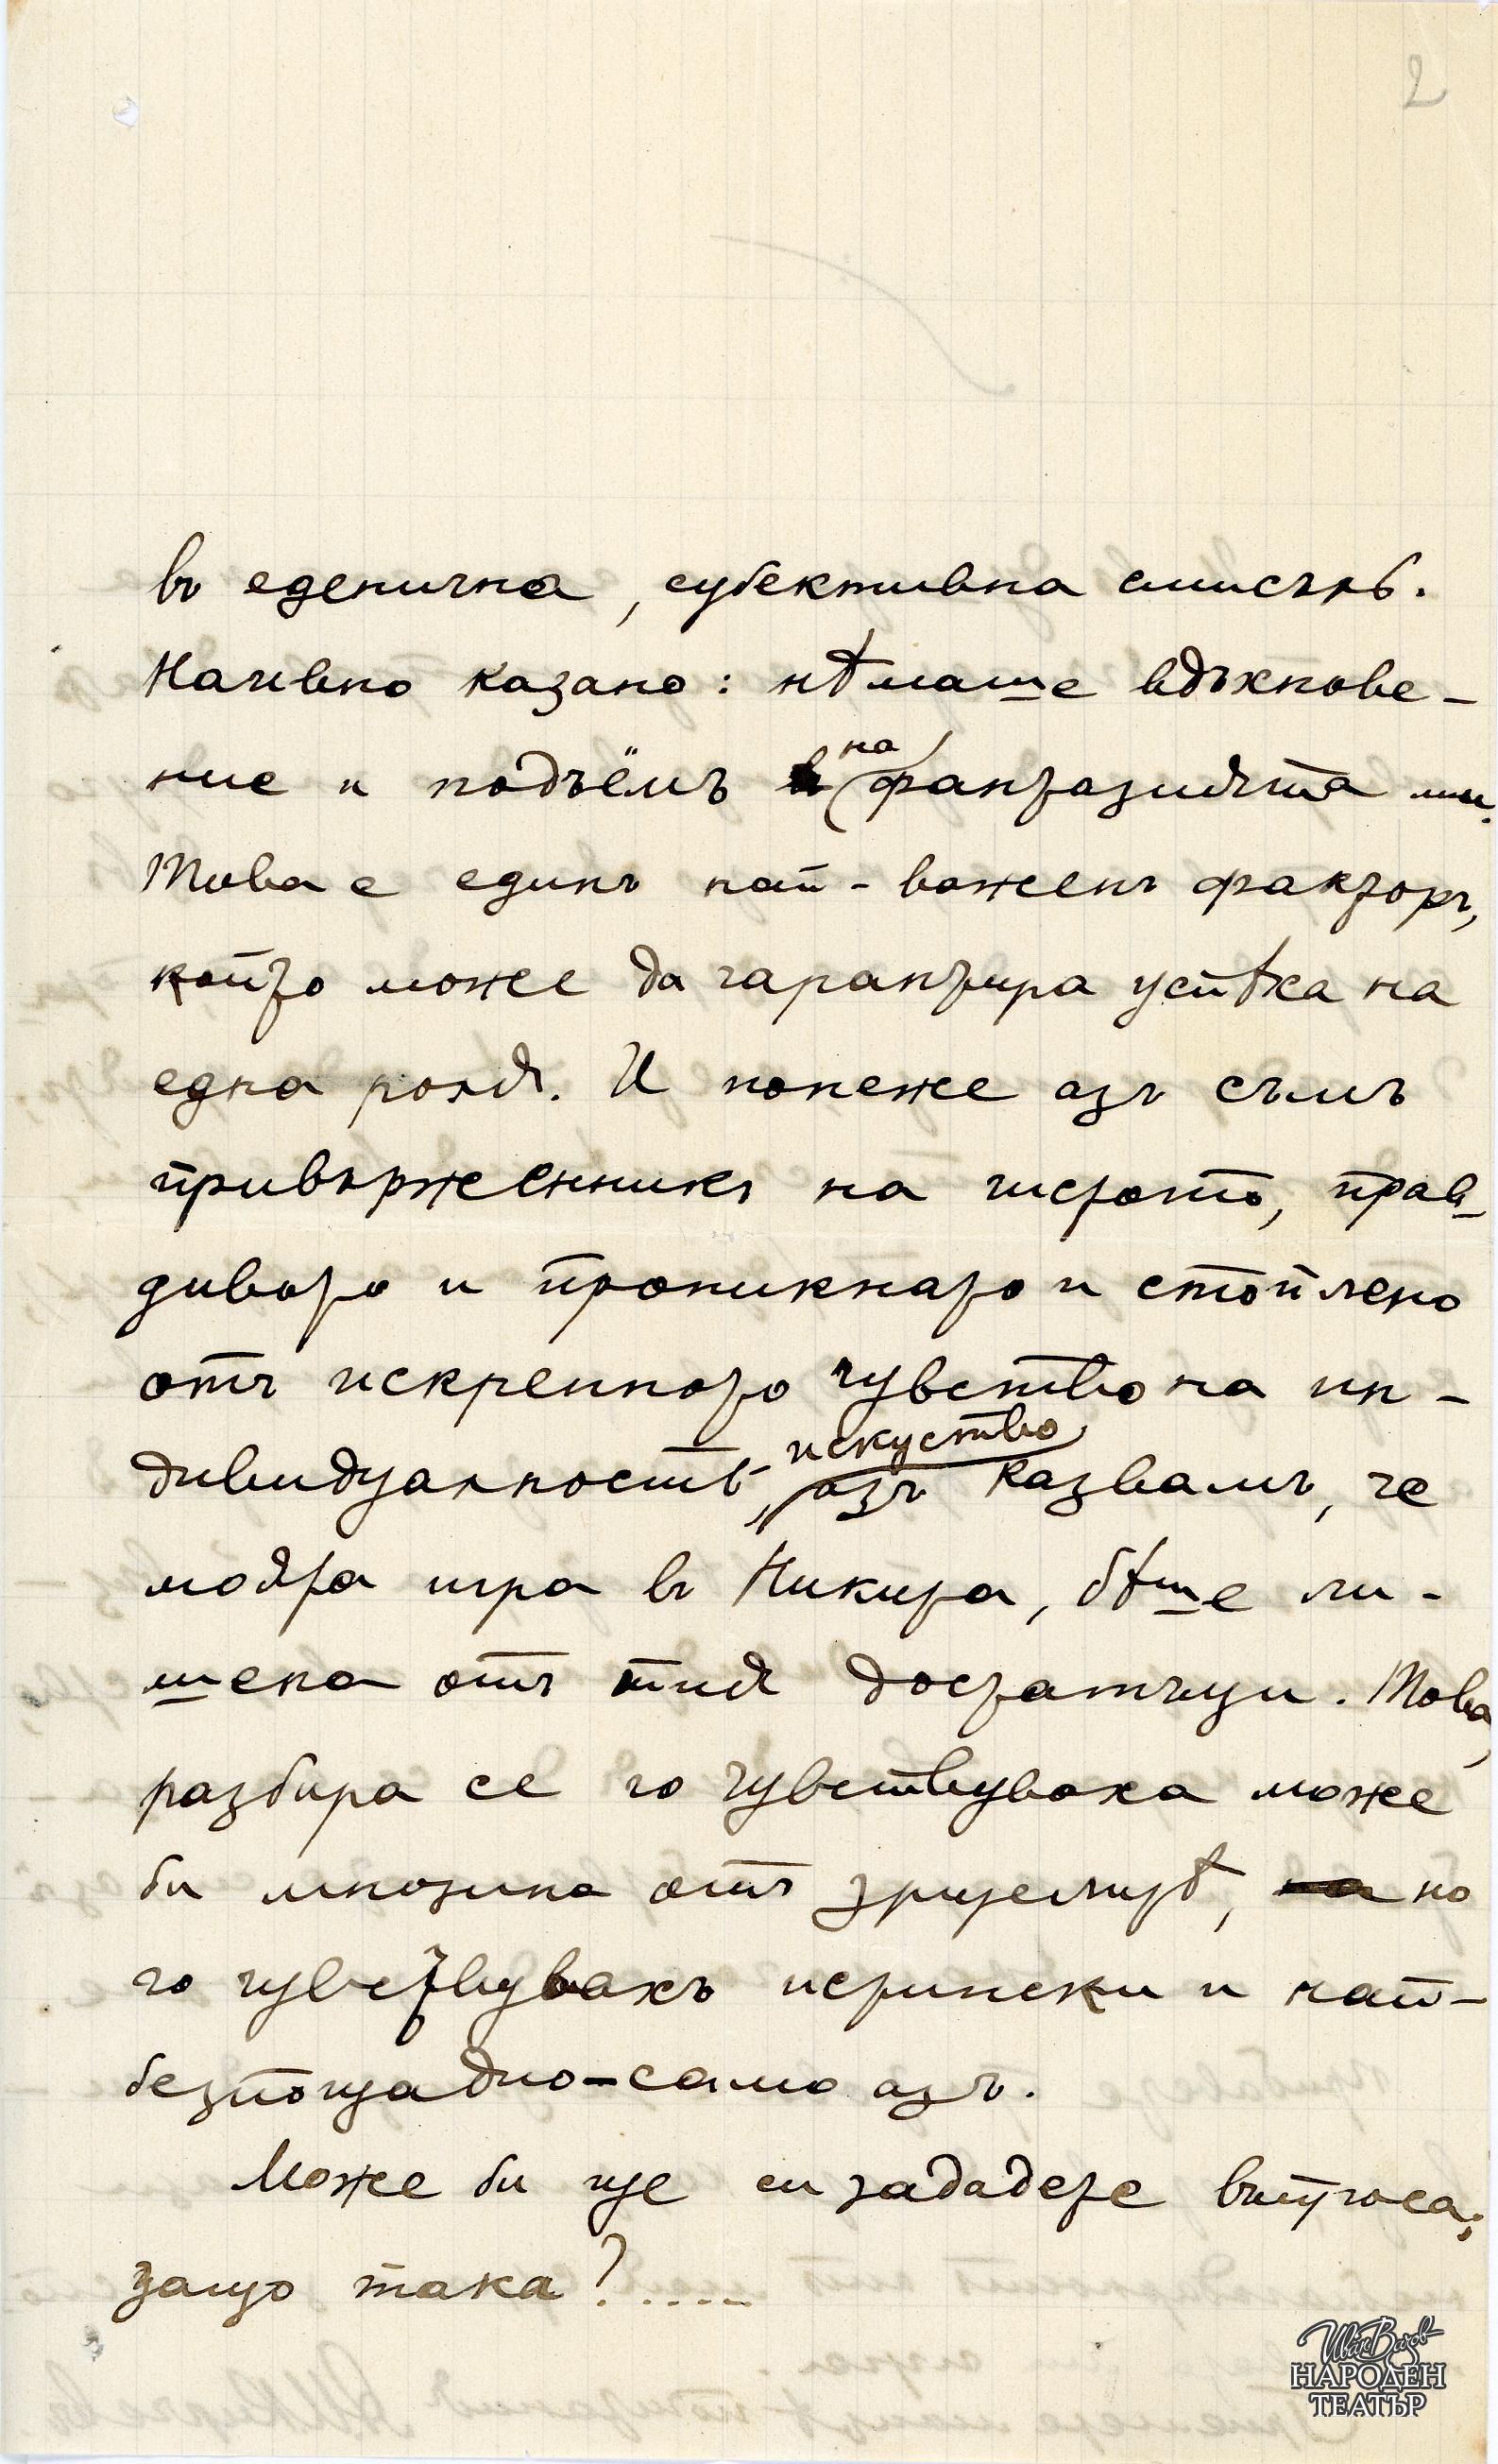 2
въ еденична, субективна смисъль.
Наивно казано: нѣмаше вдъхнове-
ние и подъёмъ на фантазията ми.
Това е единъ най-важенъ факторъ,
който може да гарантира успѣха на
една роля. И понеже азъ съмъ
привърженникъ на чистото, прав-
дивото и проникнато и стоплено
отъ искренното чувство на ин-
дивидуалность, искуство азъ казвамъ, че
моята игра въ Никита, бѣше ли-
шена отъ тия достатъци. Това,
разбира се го чувствуваха може
би мнозина отъ зрителитѣ, но
го чувствувахъ истински и най-
безпощадно-само азъ.
Може би ще си зададете въпроса:
защо така?.....
Иван Вазов
НАРОДЕН
ТЕАТЪР